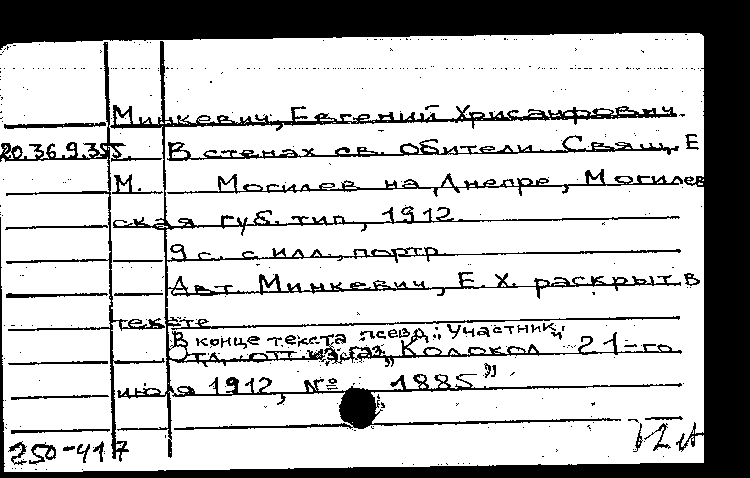 Минкевич, Евгений Хрисанфович.
20.36.9.355. В стенах св. обители. Свящ. Е
М. Могилев на Днепре, Могилев
ская губ. тип, 1912.
9 с. с илл., портр.
Авт. Минкевич, Е. Х. раскрыт в
тексте
В конце текста псевд.: "Участник"
Отд. отт. из газ. „Колокол 21-го
июля 1912, № 1885”
250-417